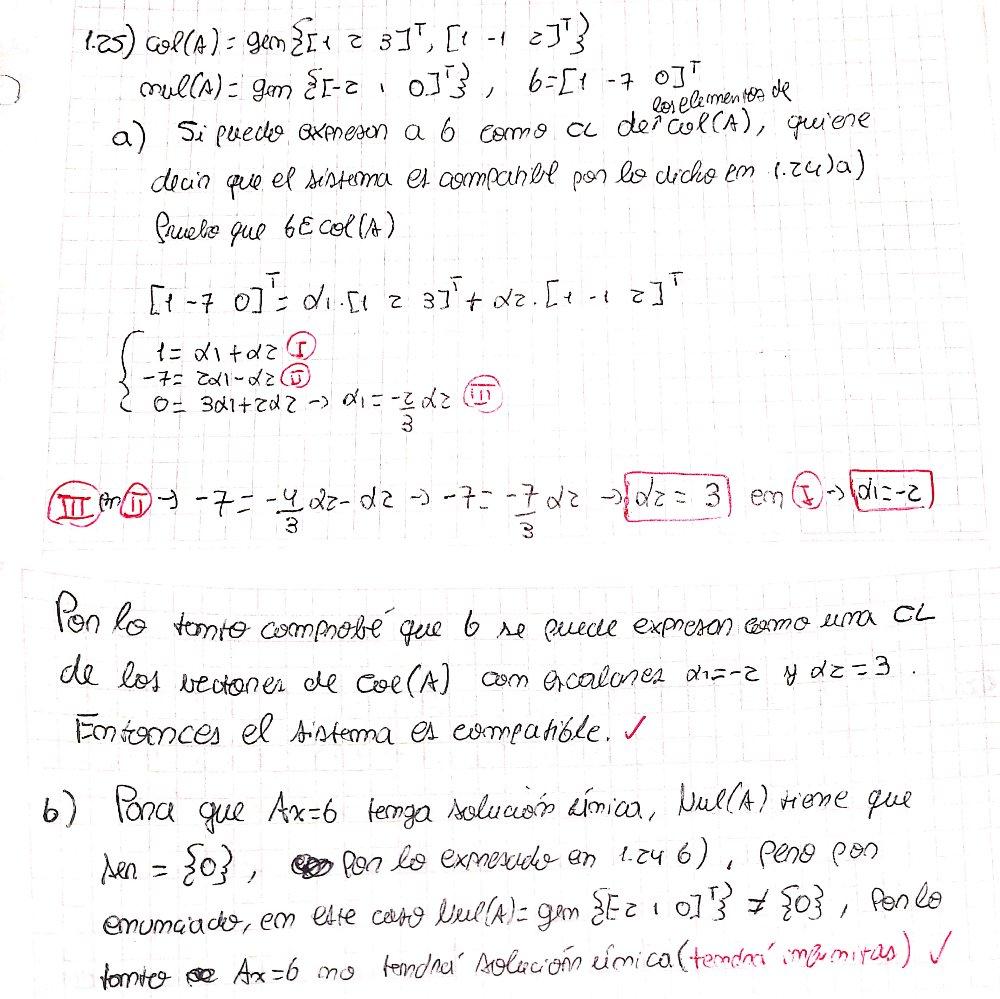 1.25) Col(A) = gen{[1 2 3]ᵀ, [1 -1 2]ᵀ}
nul(A) = gen{[-2 1 0]ᵀ}, b=[1 -7 0]ᵀ
los elementos de
a) Si puedo expresar a b como CL de Col(A), quiere
decir que el sistema es compatible por lo dicho en 1.24)a)
Pruebo que b∈col(A)
[1 -7 0]ᵀ = α1.[1 2 3]ᵀ + α2.[1 -1 2]ᵀ
1 = α1+α2 (I)
-7 = 2α1-α2 (II)
0 = 3α1+2α2 → α1 = -2/3 α2 (III)
(III) en (II) → -7 = -4/3 α2 - α2 → -7 = -7/3 α2 → α2 = 3 en (I) → α1=-2
Por lo tanto comprobé que b se puede expresar como una CL
de los vectores de Col(A) con escalares α1=-2 y α2=3.
Entonces el sistema es compatible. ✓
b) Para que Ax=b tenga solución única, Nul(A) tiene que
ser = {0}, por lo expresado en 1.24 b), pero por
enunciado, en este caso Nul(A)= gen{[-2 1 0]ᵀ} ≠ {0}, por lo
tanto Ax=b no tendrá solución única (tendrá infinitas) ✓